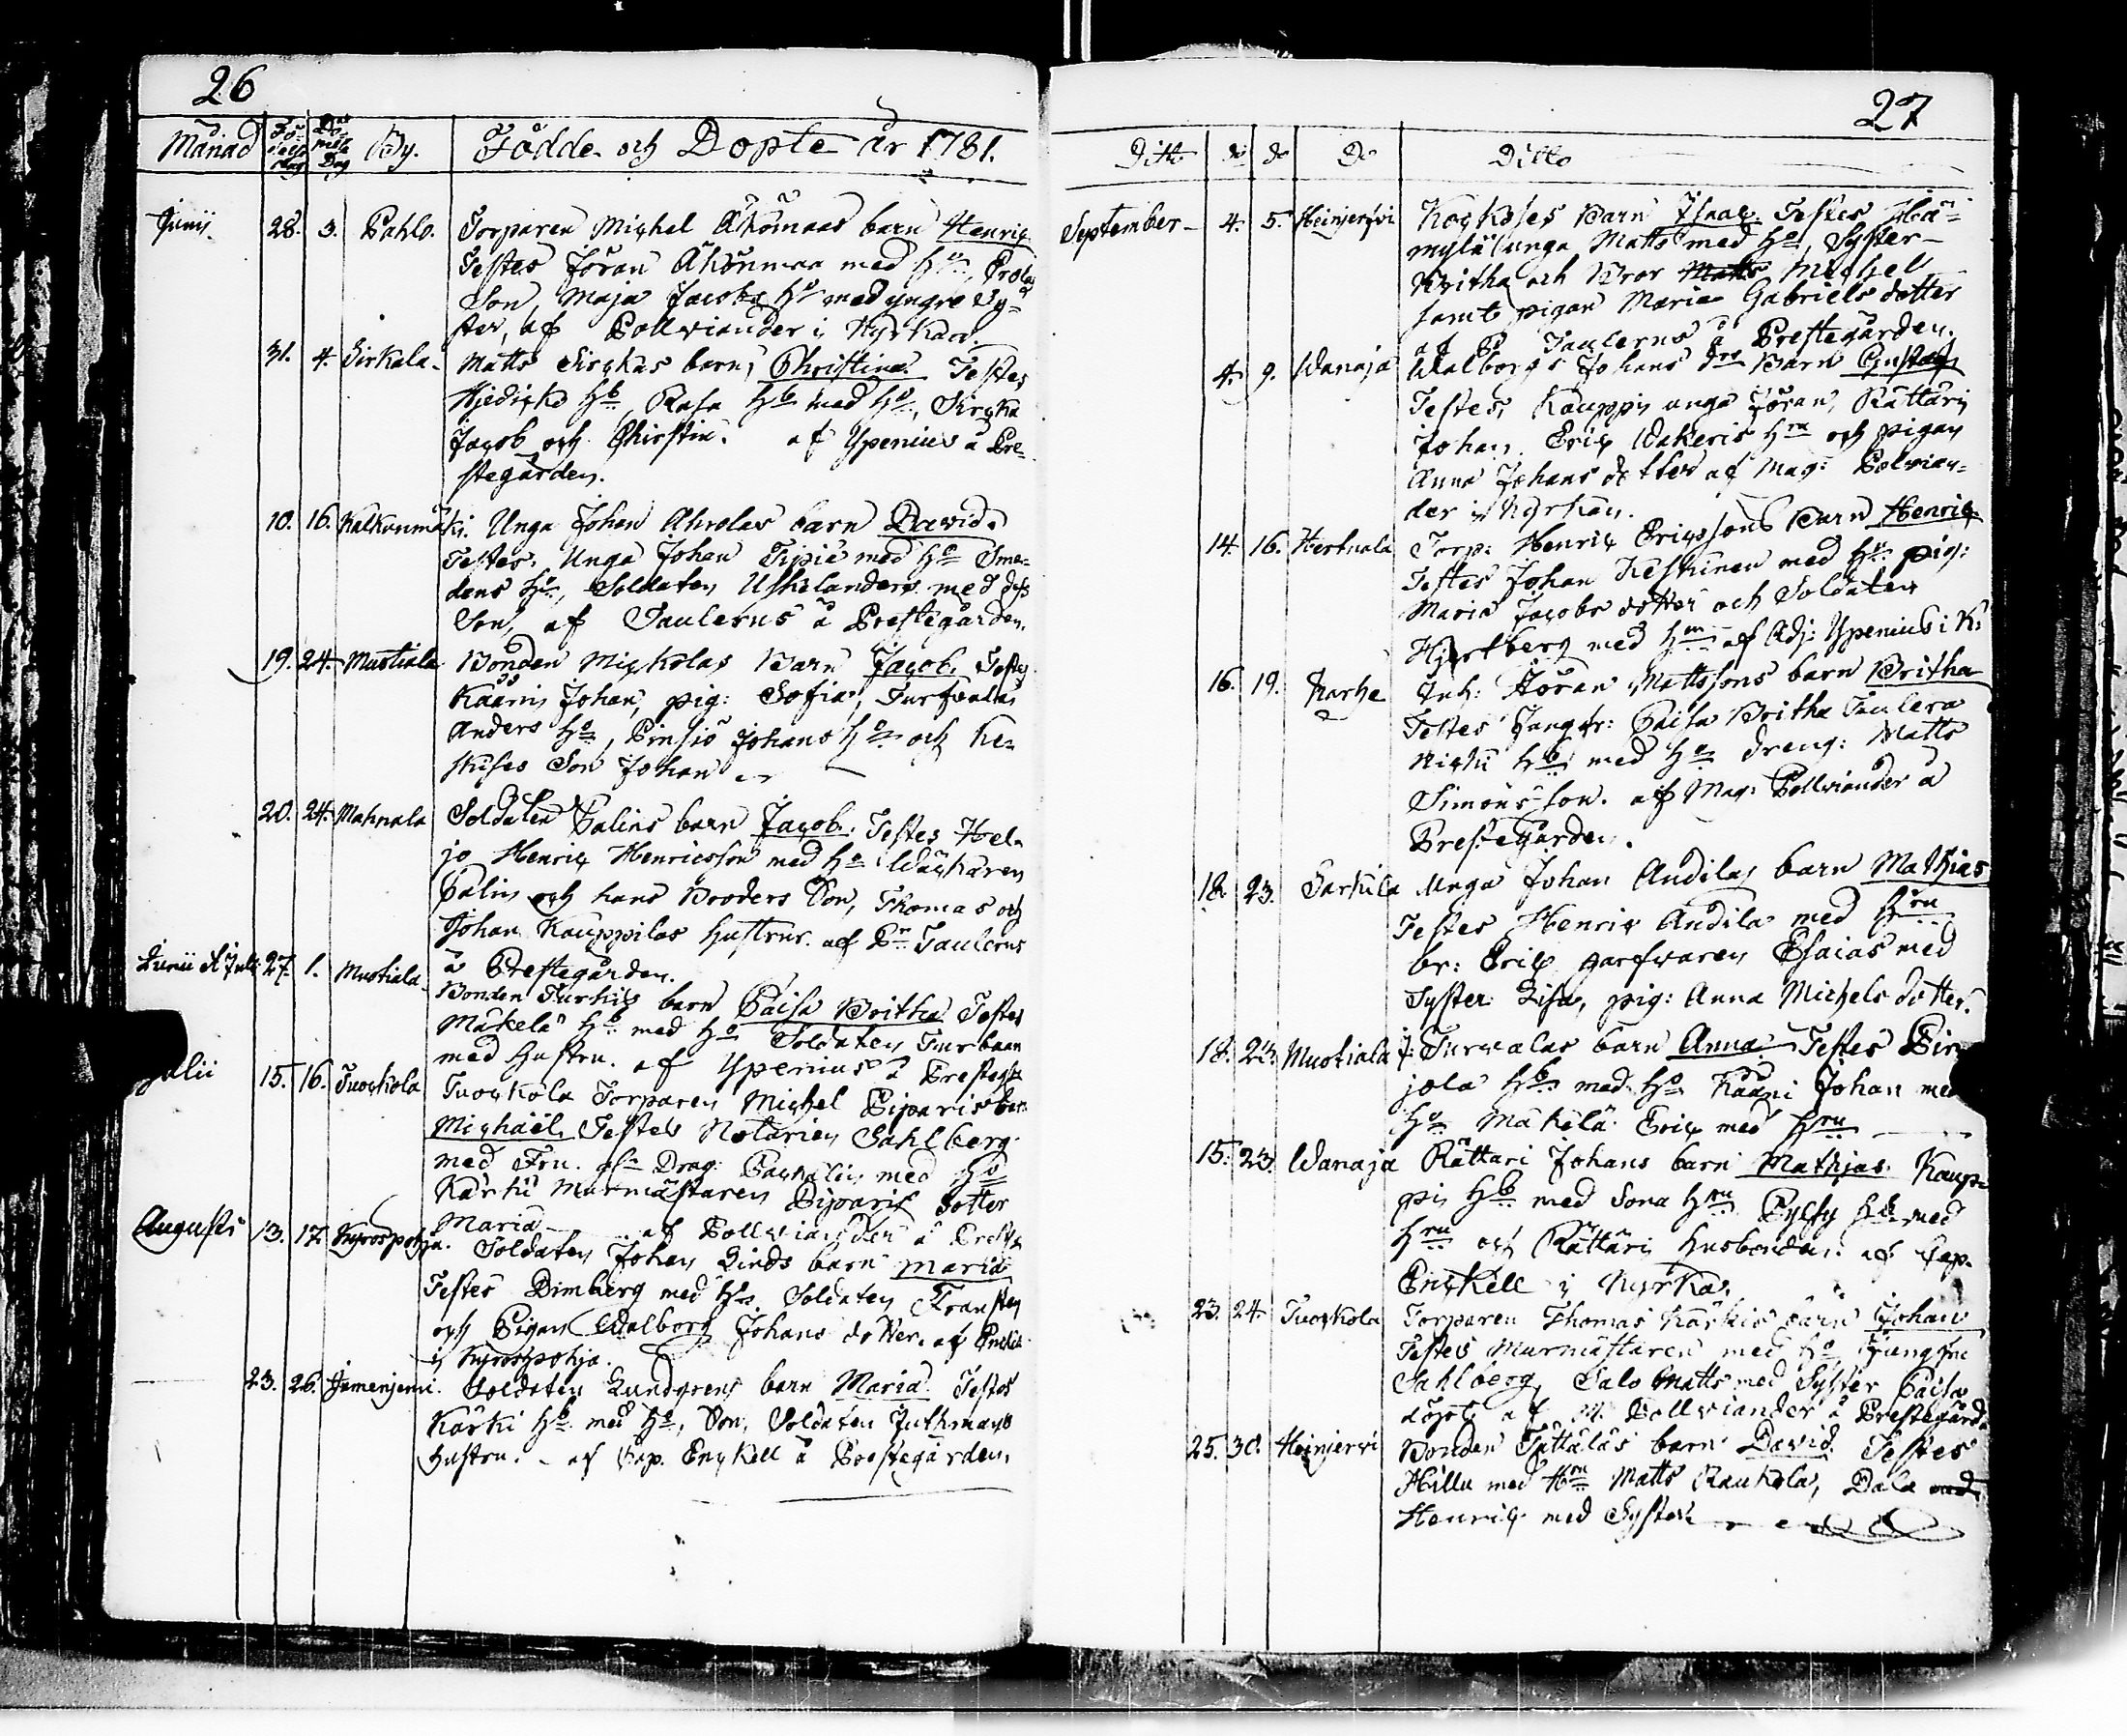 26
Månad Födelse dag Döpelse Dag By. Födde och Döpte år 1781.
Junii 28. 3. Pahlo. Torparen Michel Ahonmaas barn Henric
Testes Jöran Ahonmaa med H:u,
Son, Maja Jacobs H:u med yngre Sy=
ster, af Pollviander i Kyrkan.
31. 4. Sirkala. Matts Sirckas barn, Christina Testes
Hjedickä Hb. Rasa Hb med H:u, Sircka
Jacob och Christin. af Ypenius å Pre=
stegården.
10. 16. Kalkunmäki. Unga Johan Ahrolas barn David.
Testes. Unga Johan Tipiä med H:u Sme=
dens H:u, Soldaten Uskelanders med dess
Son, af Taulerus å Prestegården.
19. 24. Mustiala Bonden Mickolas Barn Jacob. Testes
Kaaris Johan, pig: Sofia, Turfvalas
Anders H:u, Pinsiö Johans H:u och Ke=
skises Son Johan
20. 24. Mahnala Soldaten Palins barn Jacob. Testes Hei=
jo Henric Henricsson med H:u Wäckären
Palin och hans Broders Son, Thomas och
Johan Kauppilas hustrur. af Pr Taulerus
å Prestegården.
Junii et Julii 27. 1. Mustiala. Bonden Turkis barn Caisa Britha Testes
Mäkelä Hb med H:u Soldaten Turbaan
med hustru. af Ypenius å Presteg:
Julii 15. 16. Tuockola Tuockola Torparen Michel Piparis barn
Michaël, Testes Notarien Sahlberg
med Fru. Drag: med H:u
Kärki Murmästaren Piparis dotter
Maria af Pollviander å Presteg
Augusti 13. 17. Kyrospohja. Soldaten Johan Linds barn Maria
Testes Dimberg med H:u Soldaten Fransten
och Pigan Walborg Johans dotter. af
i Kyrospohja.
23. 26. Jumenjemi. Soldaten Lundgrens barn Maria. Testes
Kärki Hb. med H:u, Son, Soldaten Juthmans
hustru. af Cap. Enckell å Prestegården.
27
Ditto do do Do Ditto
September 4. 5. Heinjerfvi Kockoses Barn Isaac. Testes Hä=
mylä unga Matts med H:u, Syster
Britha och Bror Matts Michel
samt pigan Maria Gabriels dotter
af P Taulerus å Prestegården.
4. 9. Wanaja Walborgs Johans drs Barn Gustaf
Testes, Kauppis unga Jöran, Rättäri
Johan, Eric Wakeris Hru och pigan
Anna Johans dotter af Mag: Polvian=
der i Kyrkan.
14. 16. Hertuala Torp: Henric Ericssons Barn Henric
Testes Johan Keskinen med H:u pig:
Maria Jacobs dotter och Soldaten
Hjertberg med H:u af Adj: Ypenius i K:
16. 19. Karhe Inh: Jöran Mattssons barn Britha
Testes Jungfr: Caisa Britha Taulera
Hb med H:u Dreng: Matts
Simons son. af Mag: Pollviander å
Prestegården.
18. 23. Sarkila Unga Johan Andilas barn Mathias
Testes Henric Andila med Hru
br: Eric garfvaren Esaias med
Syster Lisa, pig: Anna Michels dotter.
18. 23. Mustiala J: Turvalas barn Anna Testes Pir
jola Hb med H:u Kaari Johan med
H:u Mäkelä Eric med Hru
15. 23. Wanaja Rättäri Johans barn Mathias. Kaup=
pis Hb med Sona Hru Pyssy Hb med
Hru och Rättäri husbonden. af Cap.
Enckell i Kyrka.
23. 24. Tuockola Torparen Thomas Kärkis barn Johan
Testes Murmästaren med H:u Jungfru
Sahlberg, Salo Matts med Syster Caisa
döpt af M. Pollviander å Prestegård.
25. 30. Heinjerwi Bonden Tättäläs barn David. Testes
Hillu med Hru Matts Raukola, Dala med
Henric med Syster